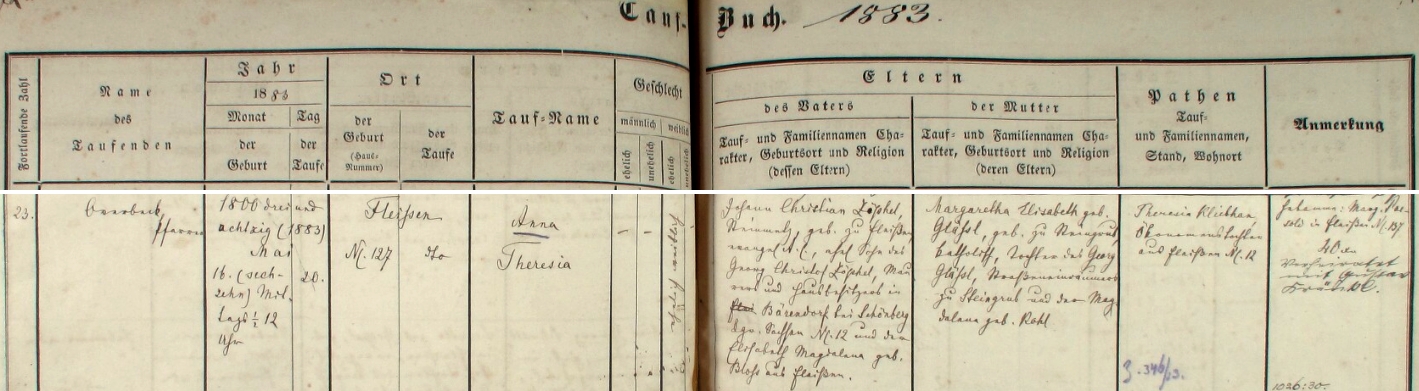 Tauf-Buch. 1883.
Fortlaufende Zahl
Name
des
Taufenden
Jahr
1883
Monat
der
Geburt
Tag
der
Taufe
Ort
der
Geburt
(Haus-
Nummer)
der
Taufe
Tauf-Name
Geschlecht
männlich
weiblich
ehelich
unehelich
ehelich
unehelich
Eltern
des Vaters
Tauf- und Familiennamen Cha-
rakter, Geburtsort und Religion
(dessen Eltern)
der Mutter
Tauf- und Familiennamen Cha-
rakter, Geburtsort und Religion
(deren Eltern)
Pathen
Tauf-
und Familiennamen,
Stand, Wohnort
Anmerkung
23.
Overbeck,
Pfarrer
1800 drei und
achtzig (1883)
Mai
16. (sech-
zehn) Mit-
tags ½ 12
Uhr
20.
Fleißen
Nr. 127
dto
Anna
Theresia
Johann Christian
Steinmetz, geb. zu Fleißen,
evangel. A.C., ehel. Sohn des
Georg Christof Mau-
rers und Hausbesitzers in
Bärendorf bei Schönberg
Sachsen Nr. 12 und der
Elisabeth Magdalena geb.
aus Fleißen.
Margaretha Elisabeth geb.
Gläßl, geb. zu Steingrub,
katholisch, Tochter des Georg
Gläßl, Straßeneinräumers
zu Steingrub und der Mag-
dalena geb.
Theresia
Ökonomenstochter
aus Fleißen Nr. 12
3.346/13.
Hebamme: Marg.
in Fleißen Nr. 137
Verheiratet
mit Gustav
1036:30.